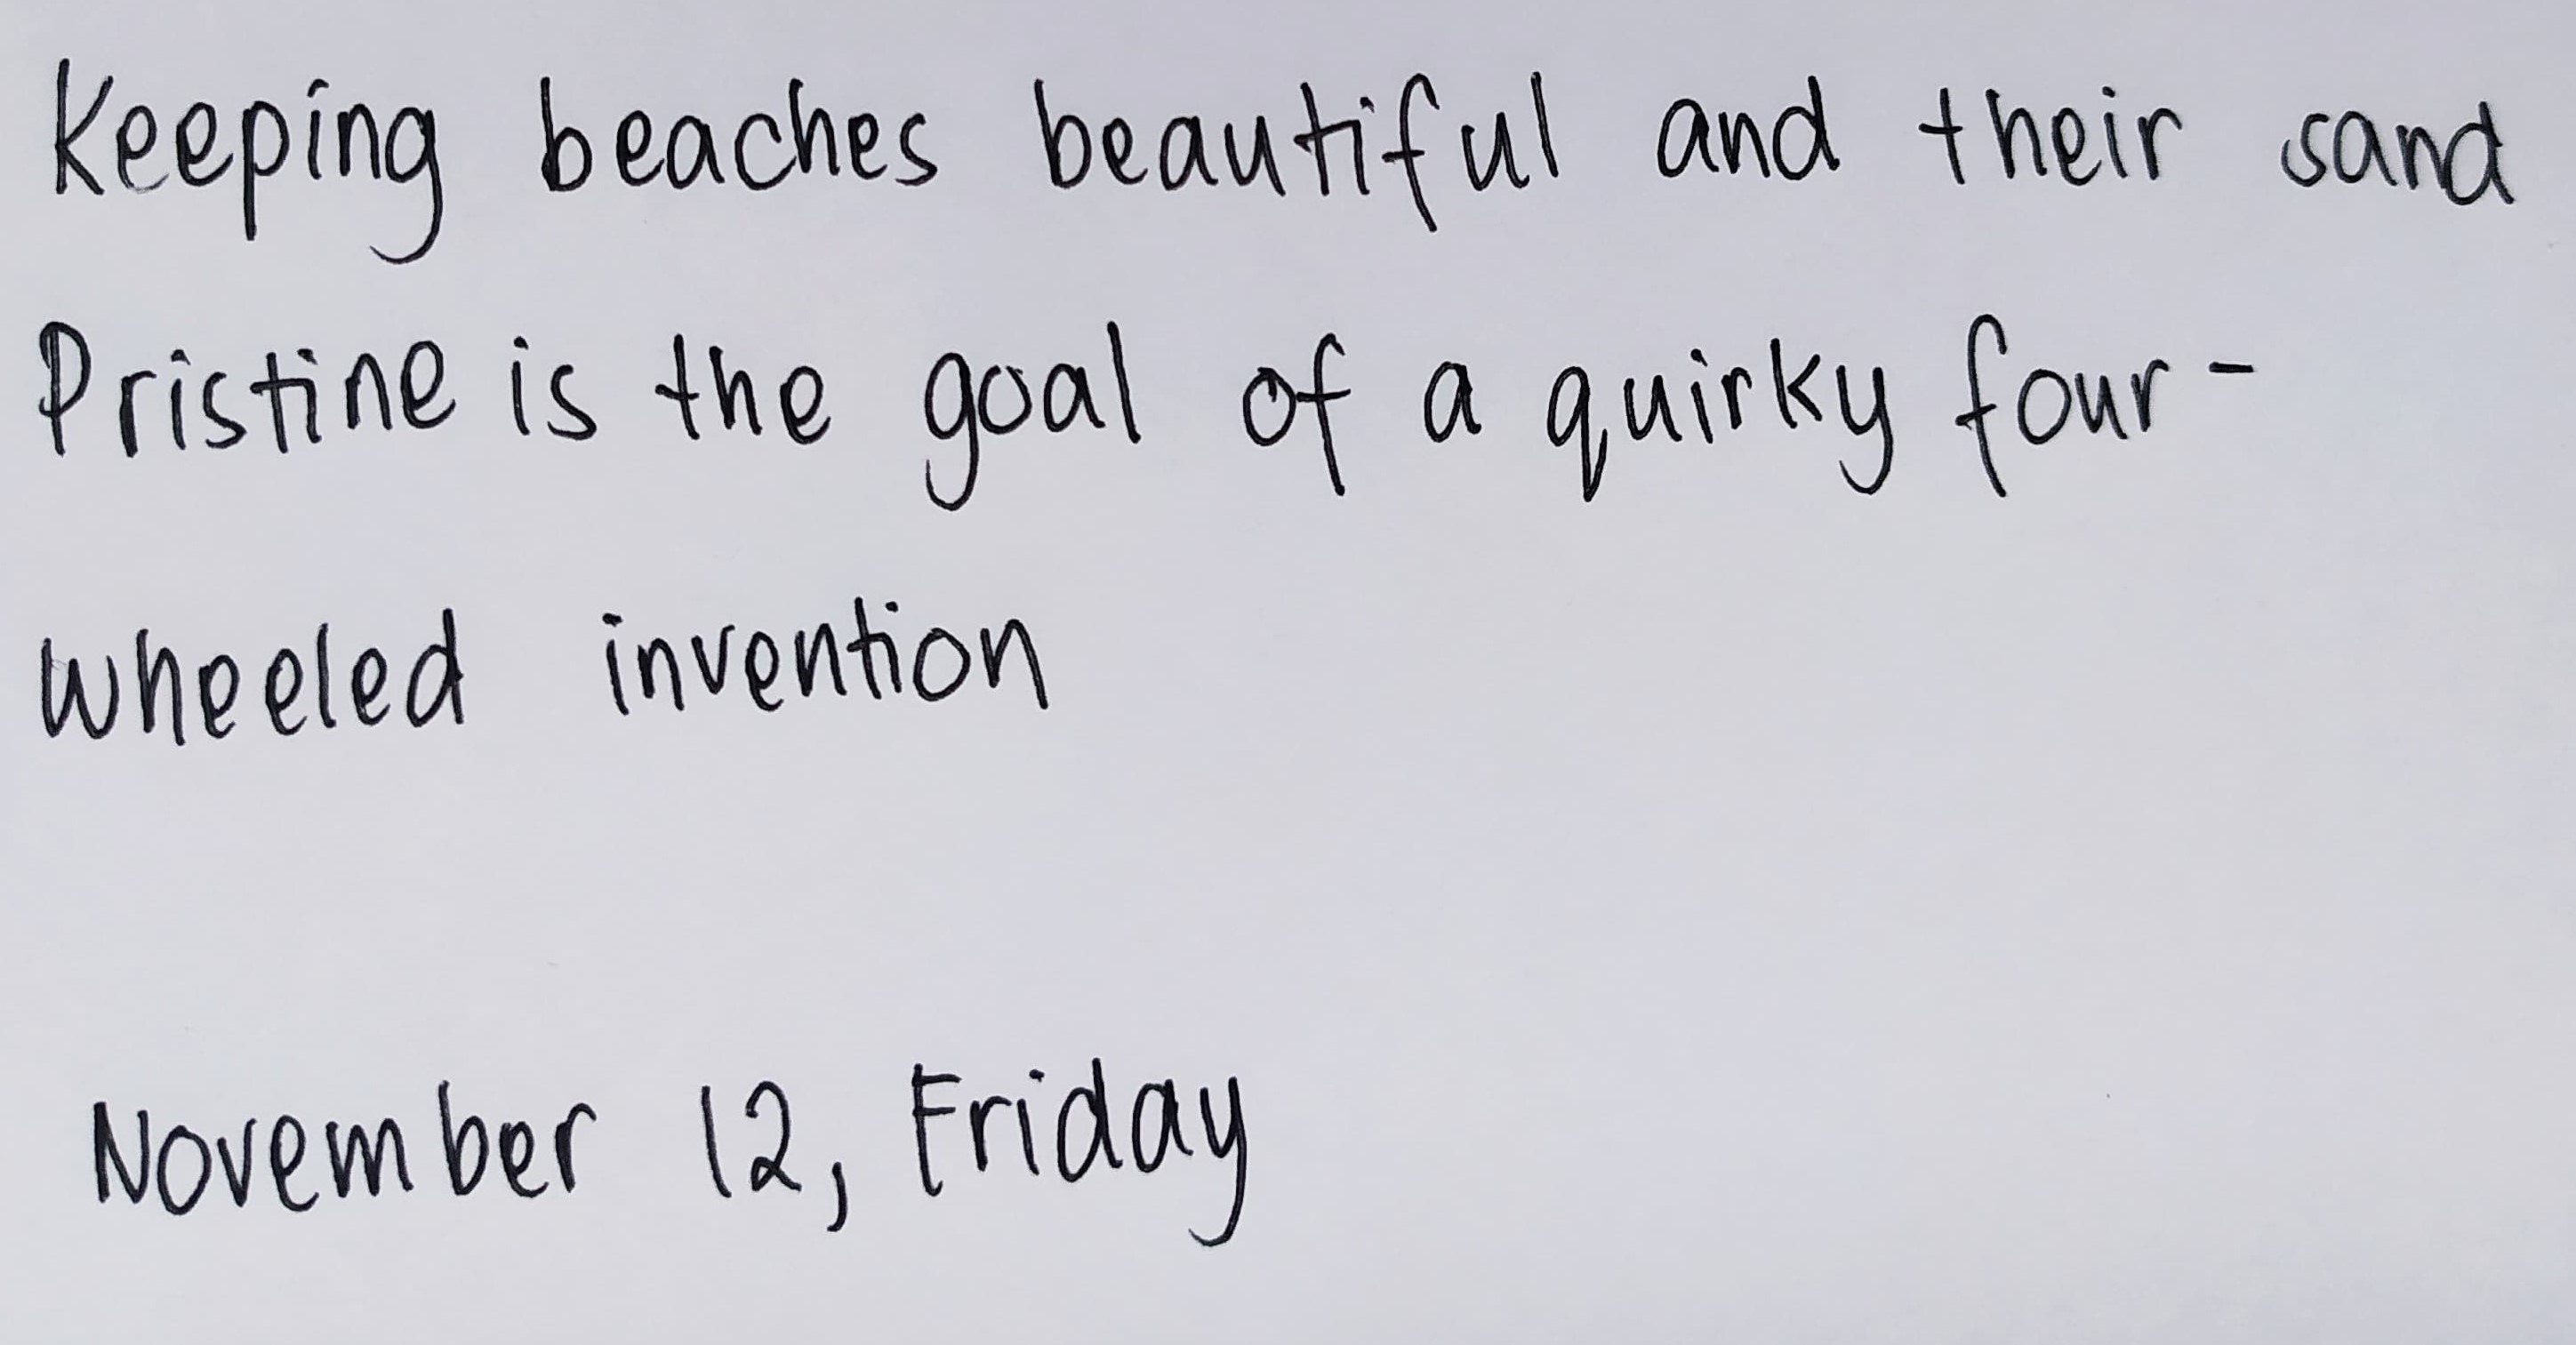 Keeping beaches beautiful and their sand
Pristine is the goal of a quirky four-
wheeled invention
November 12, Friday